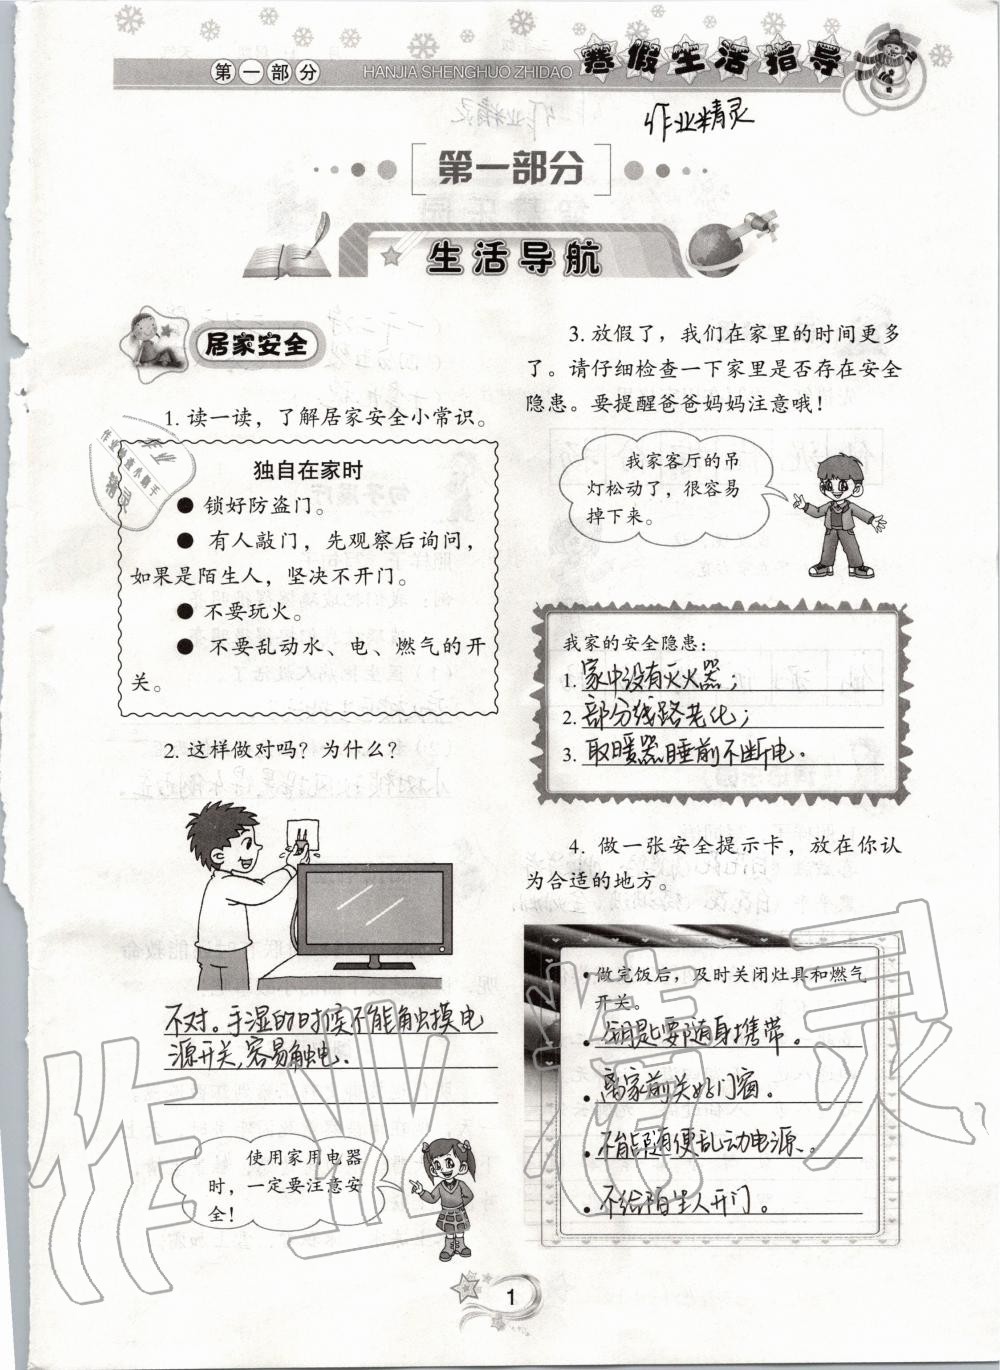 第一部分
HANJIA SHENGHUO ZHIDAO
寒假生活指导
作业精灵
第一部分
生活导航
居家安全
1. 读一读，了解居家安全小常识。
独自在家时
● 锁好防盗门。
● 有人敲门，先观察后询问，
如果是陌生人，坚决不开门。
● 不要玩火。
● 不要乱动水、电、燃气的开
关。
2. 这样做对吗？为什么？
不对。手湿的时候不能触摸电
源开关,容易触电.
使用家用电器
时，一定要注意安
全！
3. 放假了，我们在家里的时间更多
了。请仔细检查一下家里是否存在安全
隐患。要提醒爸爸妈妈注意哦！
我家客厅的吊
灯松动了，很容易
掉下来。
我家的安全隐患：
1. 家中没有灭火器；
2. 部分线路老化；
3. 取暖器睡前不断电.
4. 做一张安全提示卡，放在你认
为合适的地方。
• 做完饭后，及时关闭灶具和燃气
开关。
• 钥匙要随身携带。
• 离家前关好门窗。
• 不能随便乱动电源。
• 不给陌生人开门。
作业精灵
1